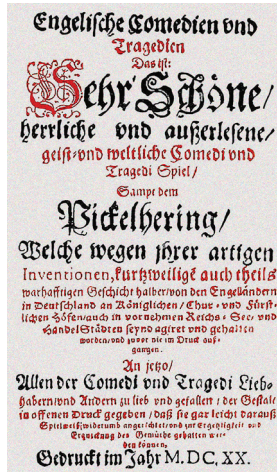 Engelische Comedien vnd
Tragedien
Das ist:
Sehr Schöne/
herrliche vnd außerlesene/
geist- vnd weltliche Comedi vnd
Tragedi Spiel/
Sampt dem
Pickelhering/
Welche wegen jhrer artigen
Inventionen, kurtzweilige auch theils
warhafftigen Geschicht halber/ von den Engelländern
in Deutschland an Königlichen/ Chur- vnd Fürst-
lichen Höfen/ auch in vornehmen Reichs- See- vnd
Handel Städten seynd agiret vnd gehalten
worden/ vnd zuvor nie im Druck auß-
gangen.
An jetzo/
Allen der Comedi vnd Tragedi Lieb-
habern/ vnd Andern zu lieb vnd gefallen/ der Gestalt
in offenen Druck gegeben/ daß sie gar leicht darauß
Spielweiß widerumb angerichtet/ vnd zur Ergetzligkeit vnd
Erquickung des Gemüths gehalten wer-
den können.
Gedruckt im Jahr M. DC. XX.